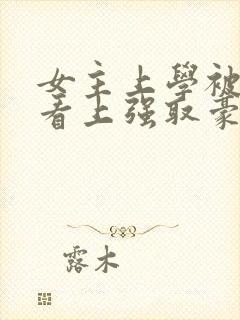 女主上學被
看上强取豪
露木